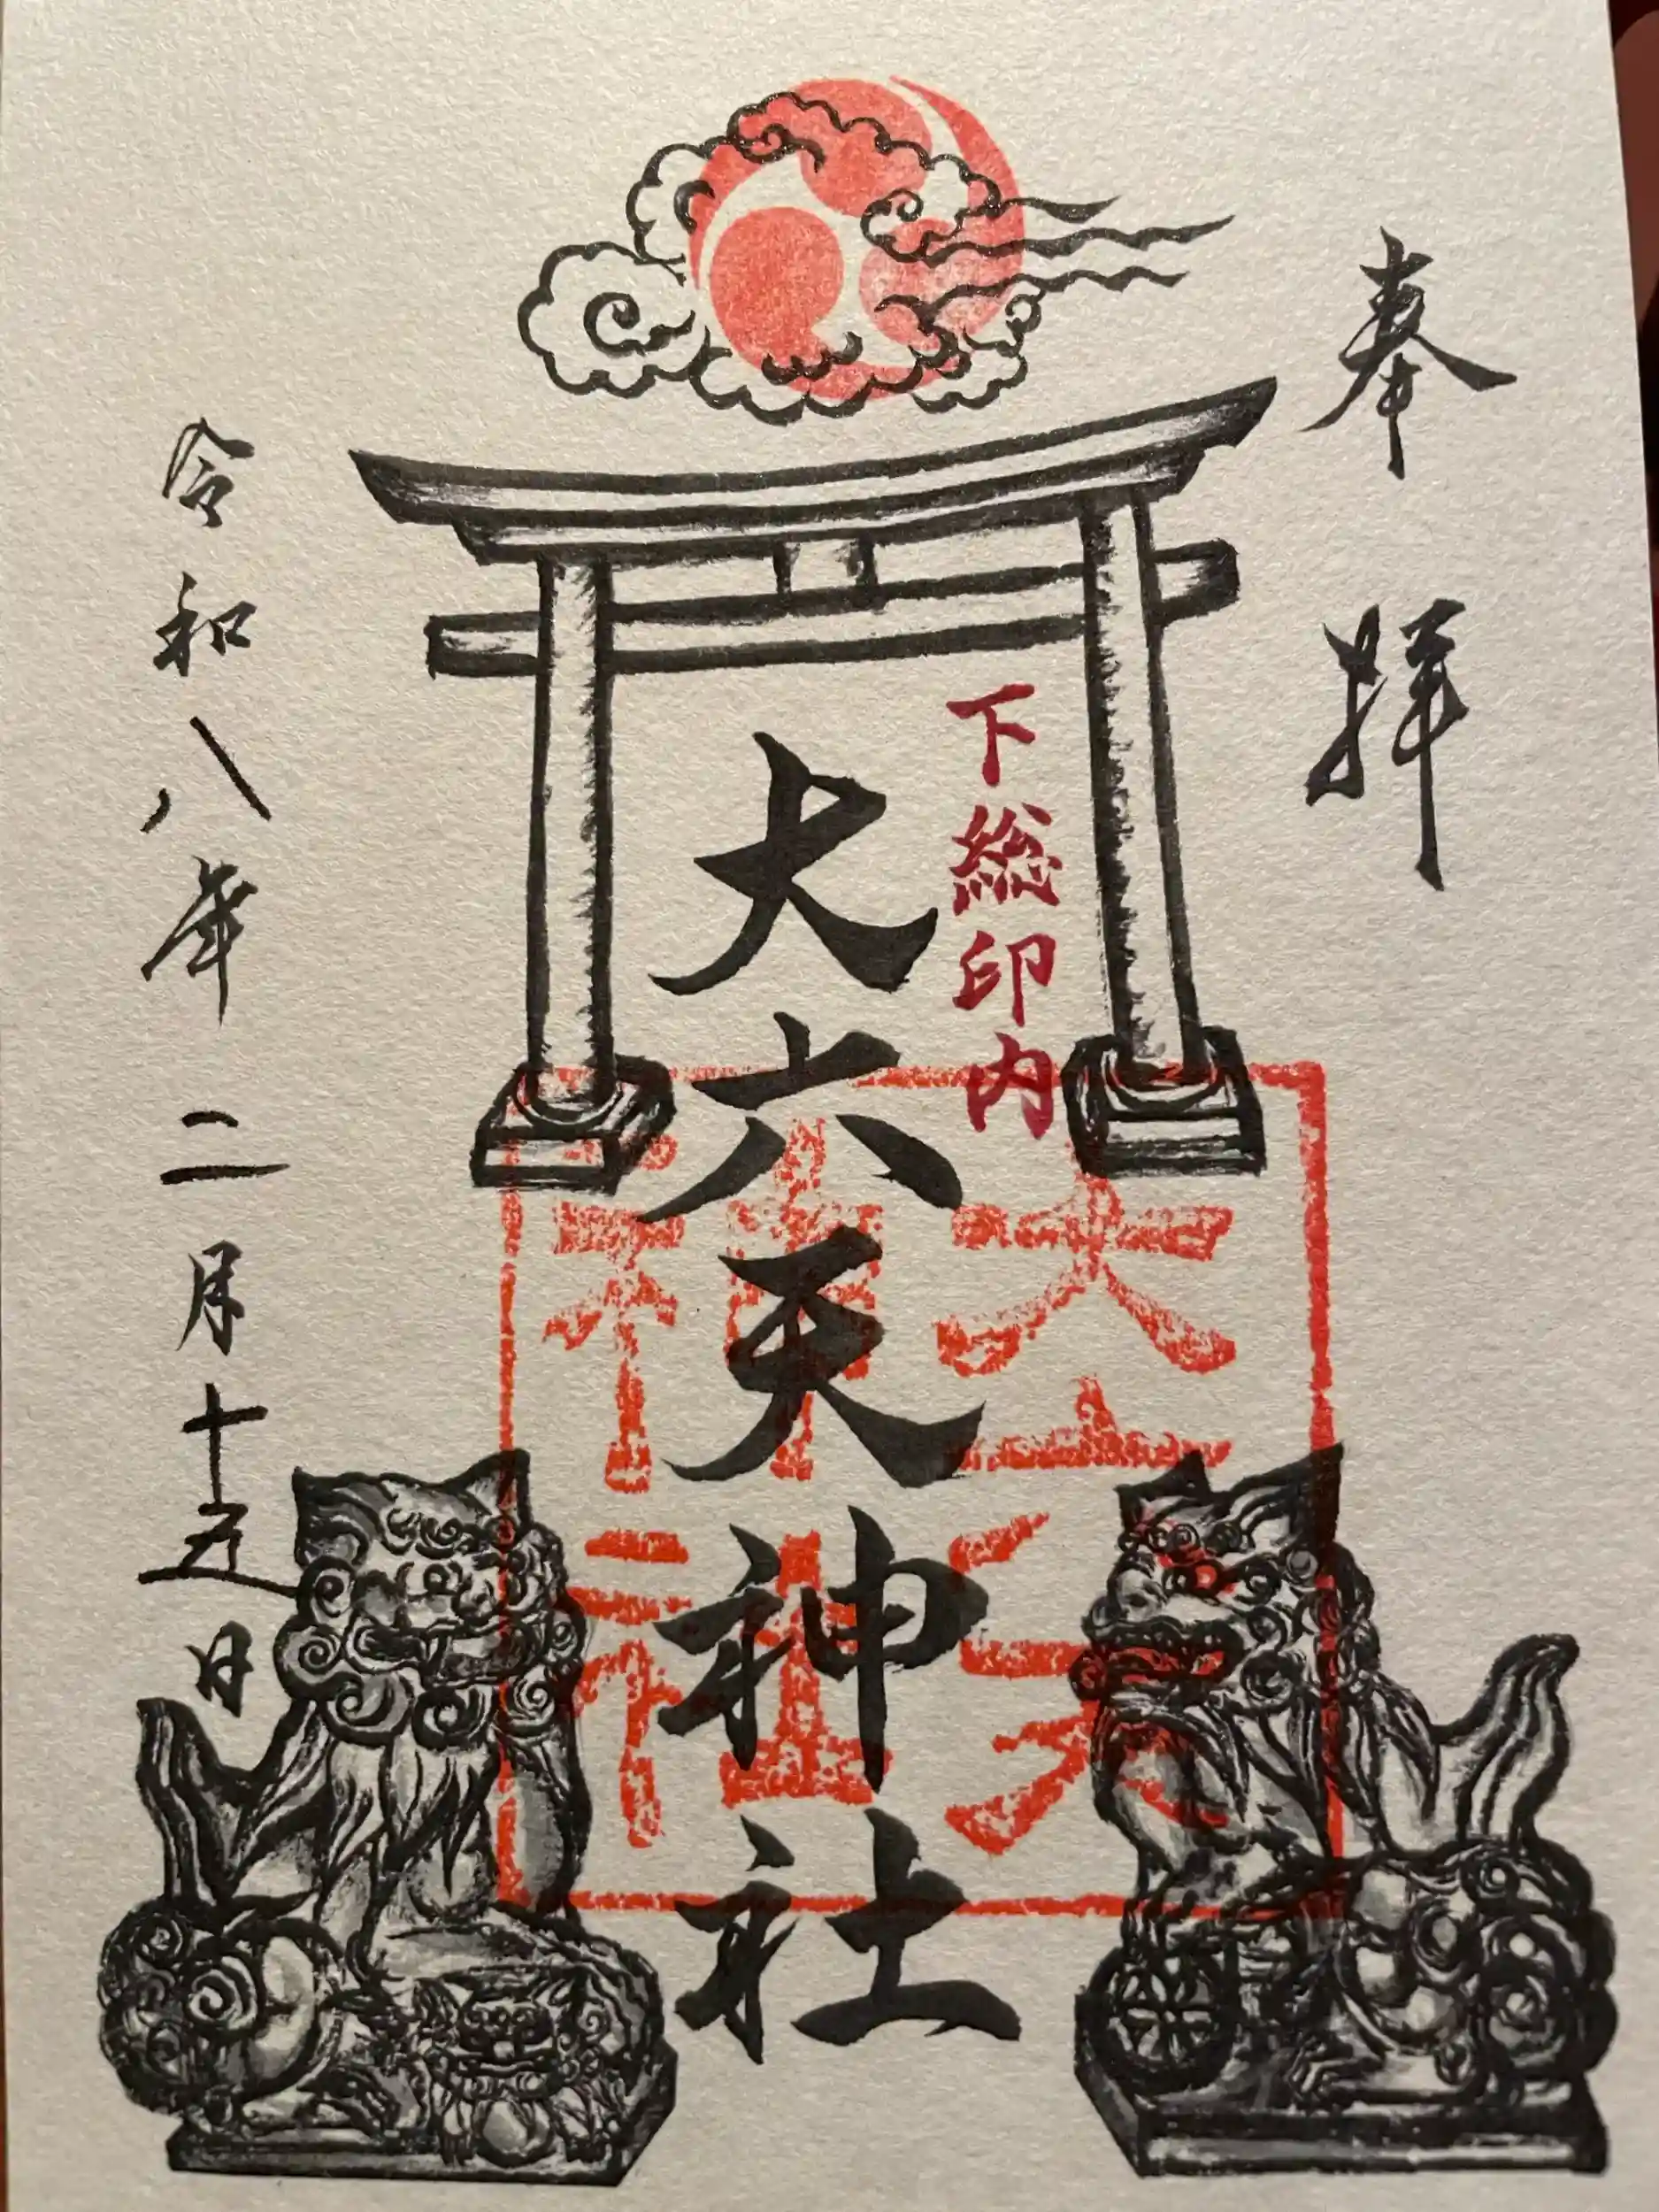 奉拝
下総印内
大六天神社
大六天神社
令和八年二月十五日